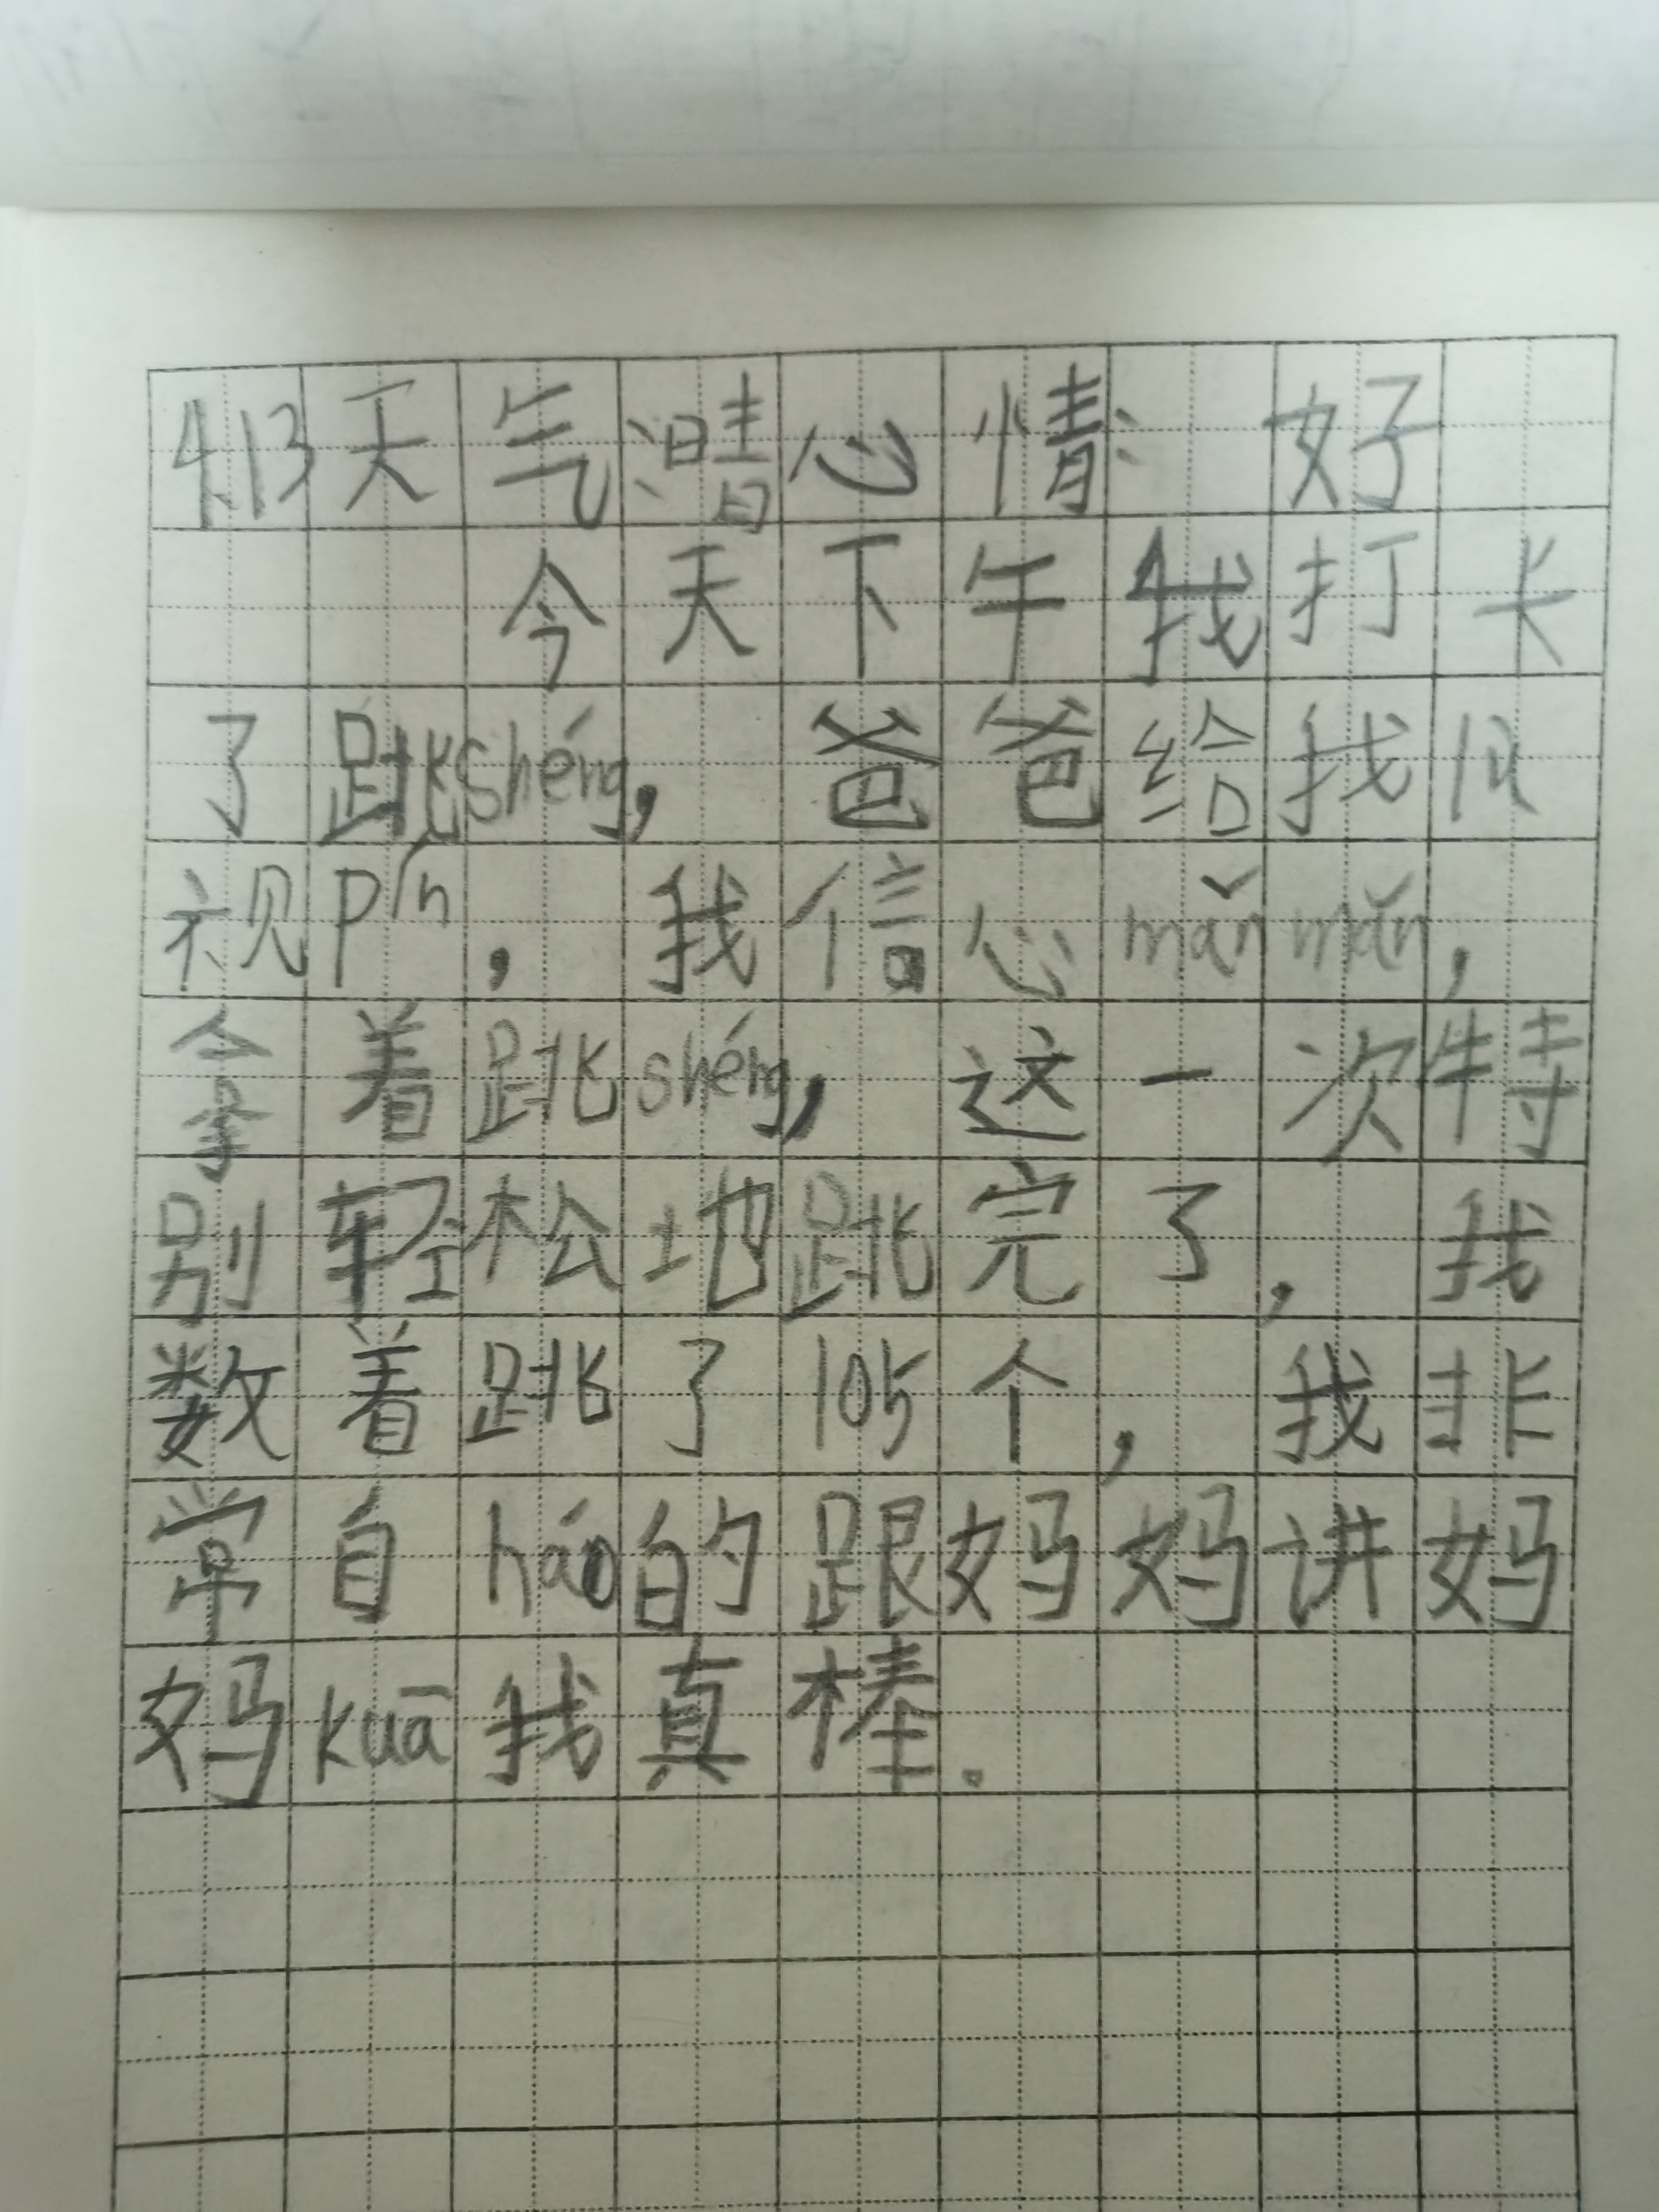 4.13天气:晴心情: 好
今天下午我打卡
了跳shéng, 爸爸给我
视pín, 我信心mǎnmǎn,
拿着跳shéng, 这一次特
别轻松地跳完了, 我
数着跳了105个, 我非
常自háo的跟妈妈讲妈
妈kuā我真棒。